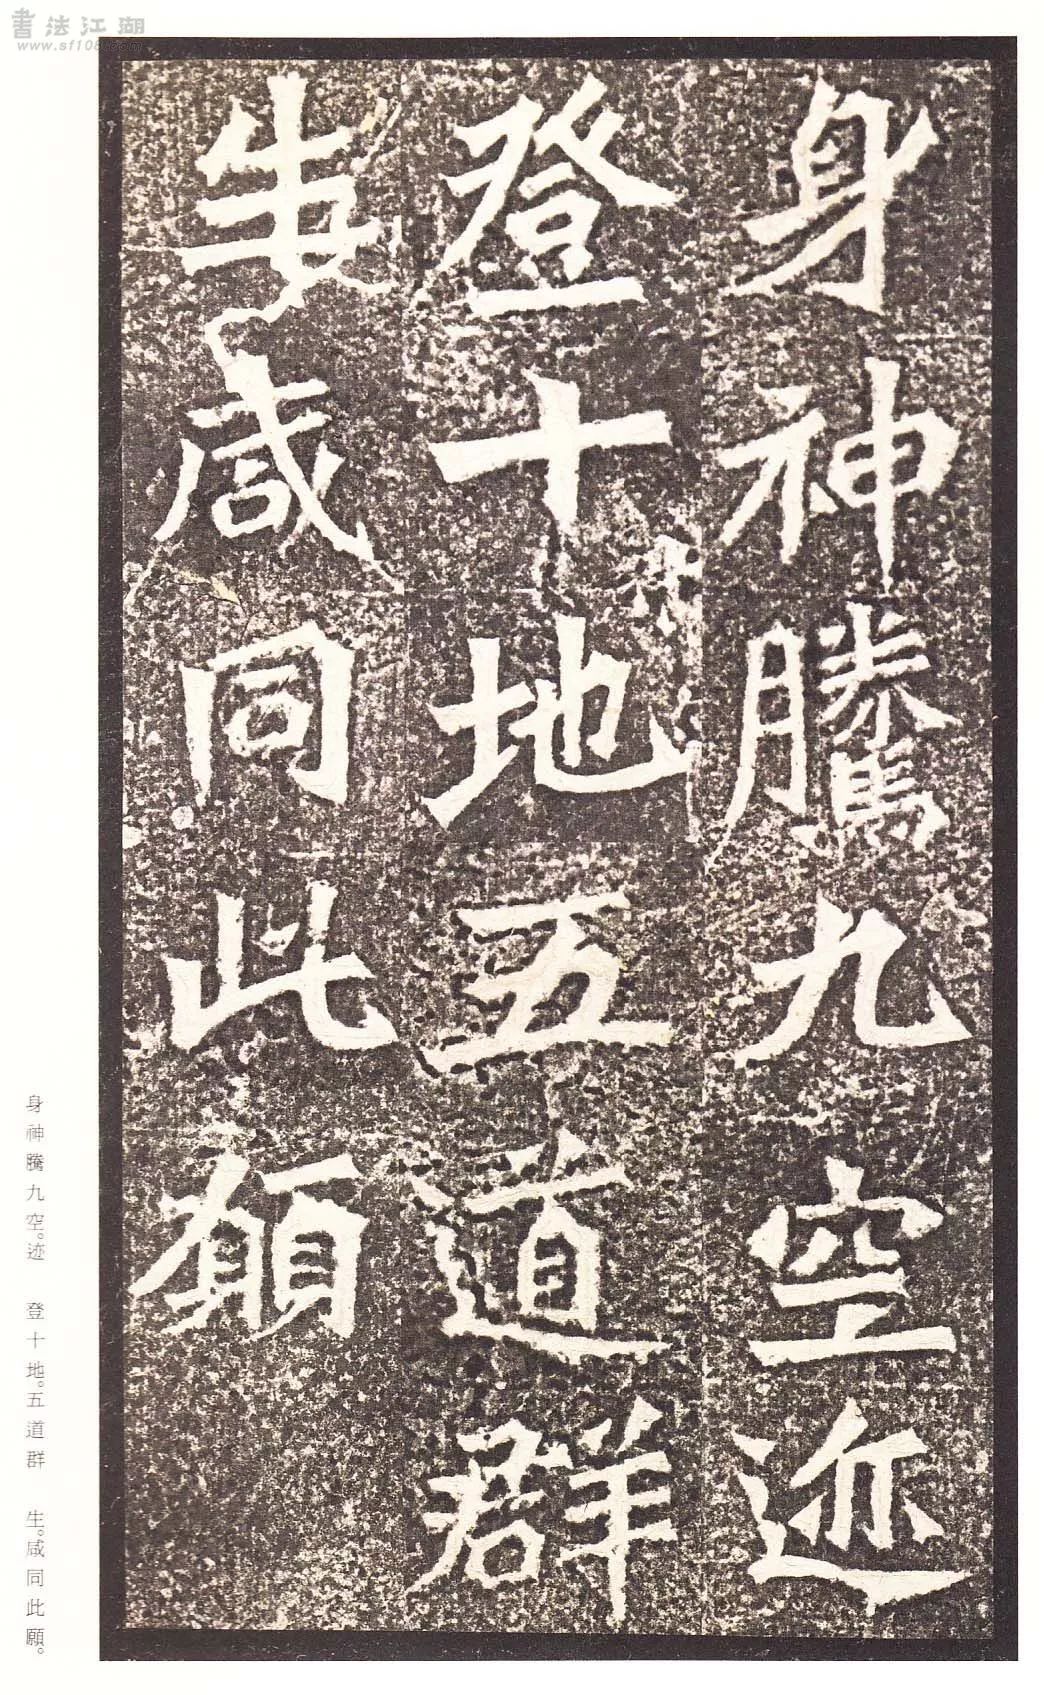 書法江湖
www.sf108.com
身神騰九空迹
登十地五道群
生咸同此願
身神騰九空。迹　登十地。五道群　生。咸同此願。